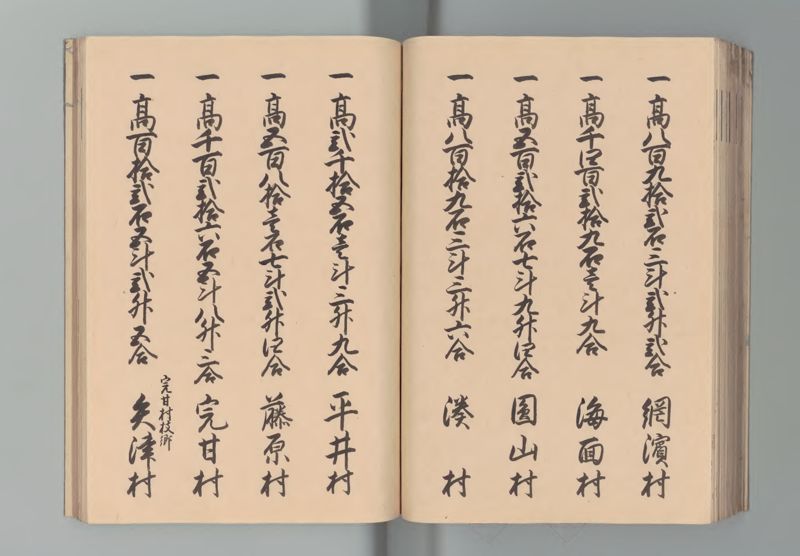 一高八百九拾弐石三斗弐升弐合 網濱村
一高千四百弐拾九石壱斗九合 海面村
一高五百弐拾六石七斗九升四合 圓山村
一高八百拾九石三斗三升六合 湊村
一高弐千拾五石壱斗三升九合 平井村
一高五百八拾壱石七斗弐升四合 藤原村
一高千百弐拾六石五斗八升三合 宍甘村
一高百拾弐石五斗弐升五合 宍甘村枝郷 矢津村